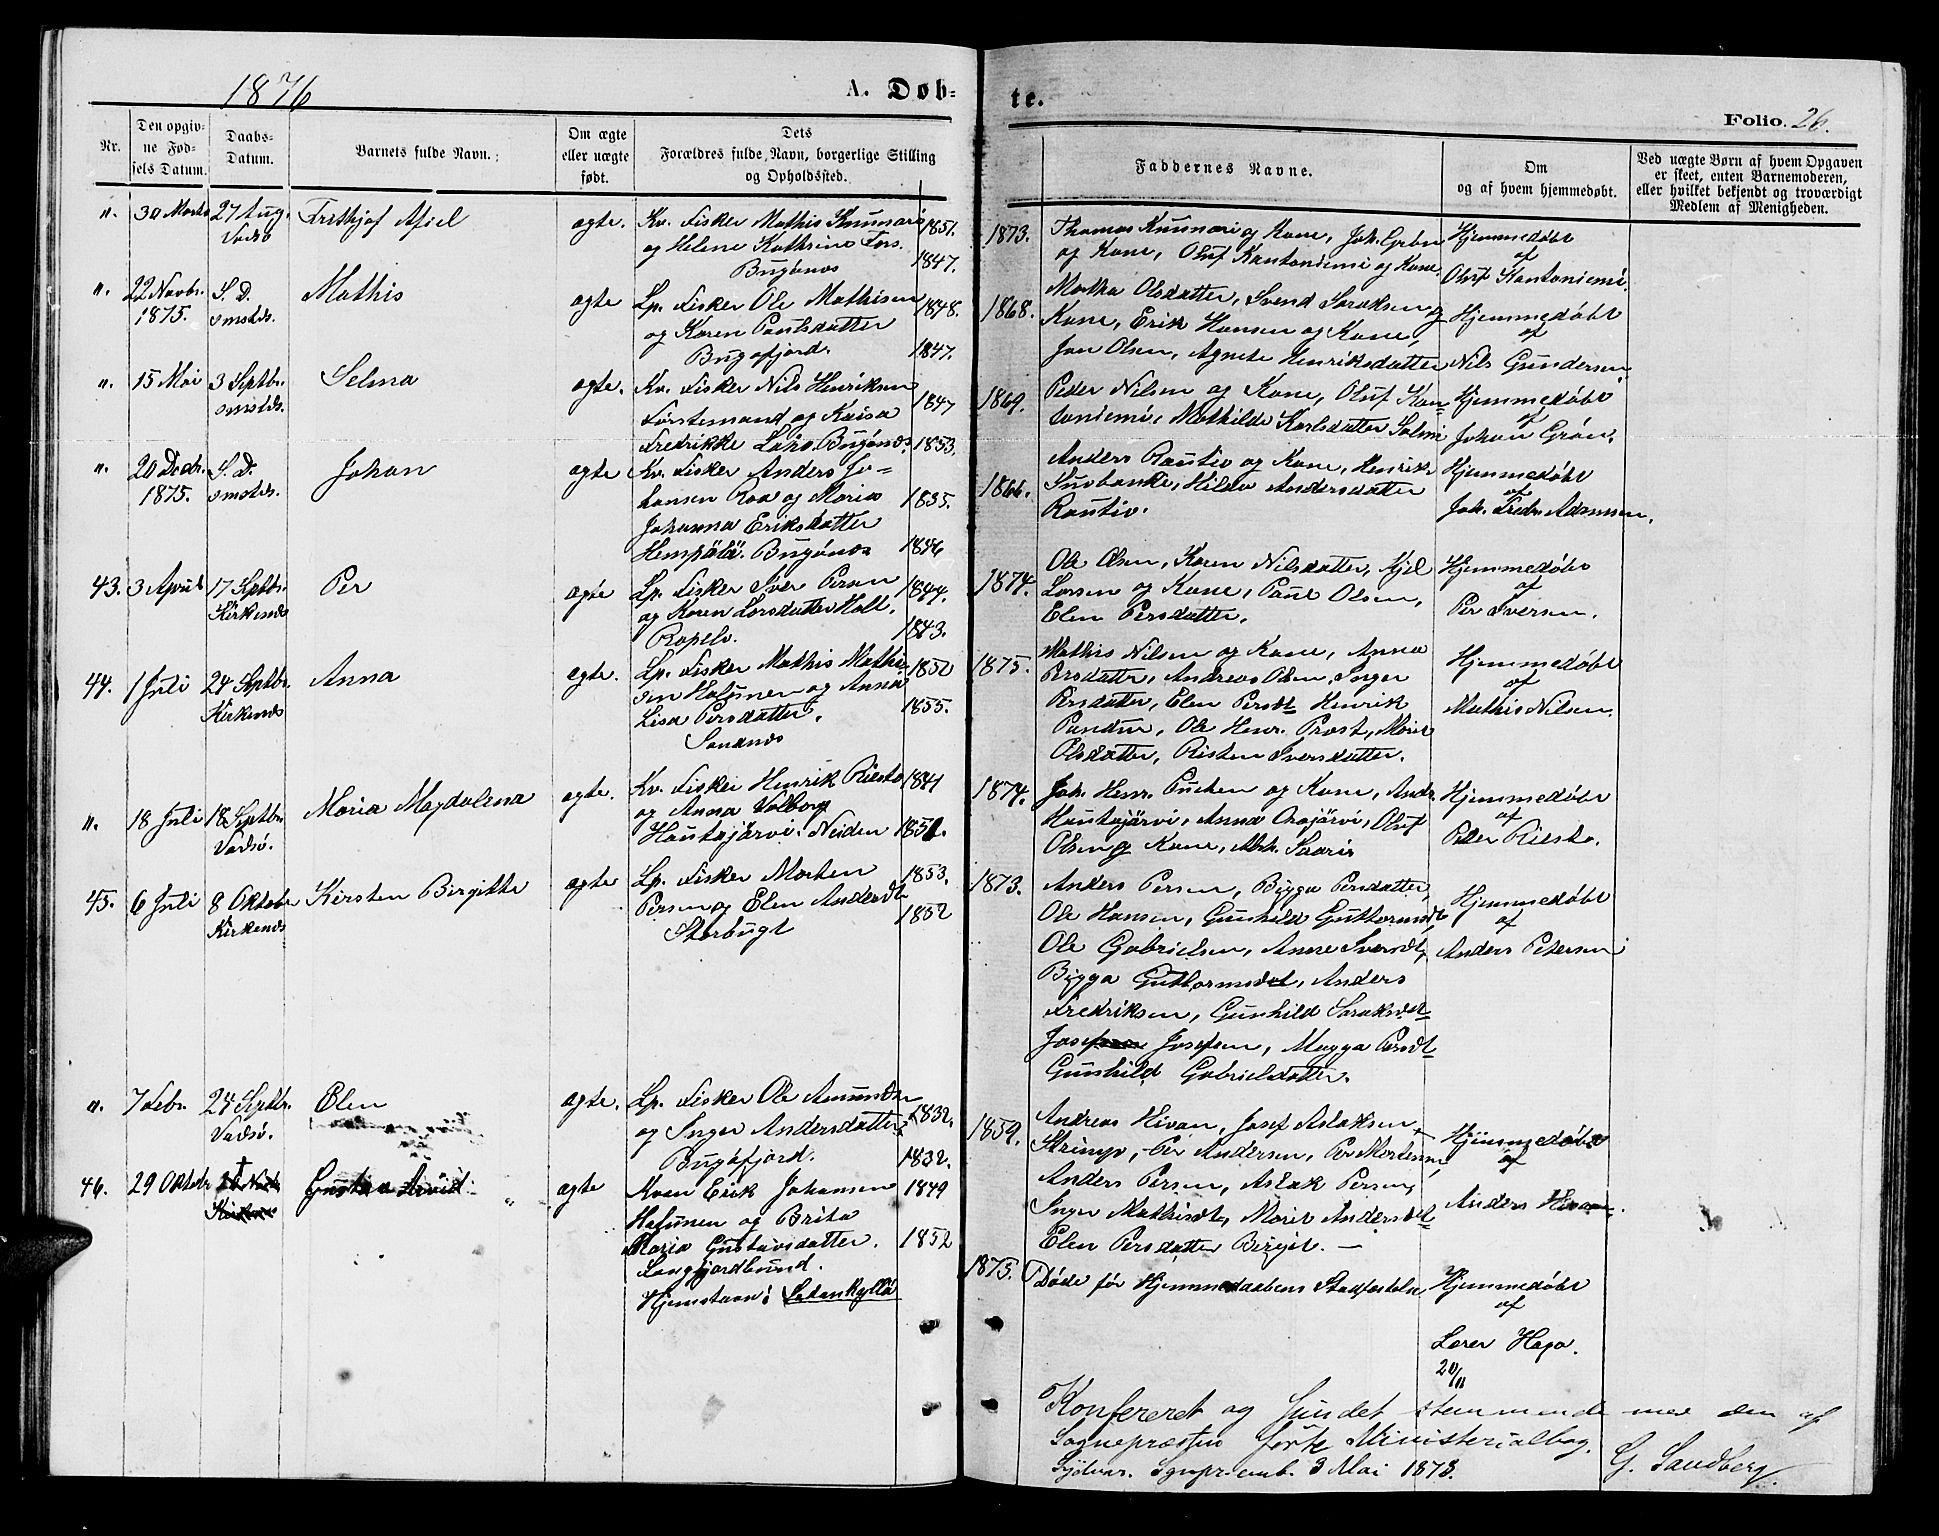 1876
A. Døb=
te.
Folio. 26.
Nr.
Den opgiv-
ne Fød-
sels Datum.
Daabs-
Datum.
Barnets fulde Navn.
Om ægte
eller uægte
født.
Dets
Forældres fulde Navn, borgerlige Stilling
og Opholdssted.
Faddernes Navne.
Om
og af hvem hjemmedøbt.
Ved uægte Børn af hvem Opgaven
er skeet, enten Barnemoderen,
eller hvilket bekjendt og troværdigt
Medlem af Menigheden.
". 30 Marts 27 Aug. Vadsø
Frithjof
ægte.
Kv. Fisker Mathis Knunari 1851.
og Helene Kathrine Fors.
Bugønæs 1847.
1873.
Thomas Knunari og Kone, Joh. Grön
og Kone, Oluf Kantoniemi og Kone.
Hjemmedøbt
af
Oluf Kantoniemi.
". 22 Novbr. 1875. S. D. smstds.
Mathis
ægte
Lp. Fisker Ole Mathisen 1848.
og Karen Paulsdatter
Bugøfjord. 1847.
1868.
Olsdatter, Svend Saraksen og
Kone, Erik Hansen og Kone,
Jon Olsen, Agnete Henriksdatter
Hjemmedøbt
af
Nils Gundersen.
". 15 Mai 3 Septbr. smstds.
Selma
ægte.
Kv. Fisker Nils Henriksen 1847
Törstemand og Kaisa
Fredrikke Bugønæs. 1853.
1869.
Peder Nilsen og Kone, Oluf Kan-
toniemi, Mathilde Karlsdatter Salmi
Hjemmedøbt
af
Johan Grön.
". 20 Decbr. 1875. S. D. smstds.
Johan
ægte
Kv. Fisker Anders Jo-
hansen Raa og Maria 1835.
Johanna Eriksdatter
Hempälä. Bugønæs 1846
1866.
Anders Rautio og Kone, Henrik
Hilda Andersdatter
Rautio.
Hjemmedøbt
af
Joh. Fredr. Adamsen.
43. 3 April 17 Septbr. Kirkenæs
Per
ægte
Lp. Fisker Iver Persen 1844.
og Karen Larsdatter Holt,
Ropelv. 1843.
1874.
Ole Olsen, Karen Nilsdatter, Kjel
Larsen og Kone, Paul Olsen,
Elen Persdatter.
Hjemmedøbt
af
Per Iversen.
44. 1 Juli 24 Septbr. Kirkenæs
Anna
ægte.
Lp. Fisker Mathis Mathi- 1850
sen Halonen og Anna
Lisa Persdatter. 1855.
Sandnæs
1875.
Mathis Nilsen og Kone, Anna
Persdatter, Andreas Olsen, Inger
Persdatter, Elen Persdt Henrik
Ole Henr. Prost, Marit
Olsdatter, Risten Iversdatter.
Hjemmedøbt
af
Mathis Nilsen.
". 18 Juli 18 Septbr. Vadsø.
Maria Magdalena
ægte.
Kv. Fisker Henrik Riesto 1841
og Anna Valborg
Hautajärvi. Neiden 1851.
1874.
Joh. Henr. Puchen og Kone, Andr.
Hautajärvi, Anna Orajärvi, Oluf
Olsen og Kone, Saari
Hjemmedøbt
af
Peder Riesto.
45. 6 Juli 8 Oktober Kirkenæs
Kirsten Birgitte
ægte
Lp. Fisker Morten 1853.
Persen og Elen Andersdt. 1852
Storbugt
1873.
Anders Persen, Bigga Persdatter,
Ole Hansen, Gunhild Guttormsdt,
Ole Gabrielsen, Anne Iversdt,
Bigga Guttormsdt, Anders
Fredriksen, Gunhild Saraksdt
Josef Josefsen, Magga Persdt
Gunhild Gabrielsdatter.
Hjemmedøbt
af
Anders Petersen
". 7 Febr. 24 Septbr. Vadsø.
Elen
ægte.
Lp. Fisker Ole Amundsen 1832.
og Inger Andersdatter
Bugøfjord. 1832.
1859.
Andreas Hivan, Josef Aslaksen
Strimp, Per Andersen, Per Mortensen,
Anders Persen, Aslak Persen,
Inger Mathisdt, Marit Andersdt
Elen Persdatter Birgit. —
Hjemmedøbt
af
Anders Hivan.
46. 29 Oktobr †
Gustav Arvid "
ægte
Kven Erik Johansen 1849
Halonen og Brita
Maria Gustavsdatter. 1852
Langfjordbund.
Hjemstavn:
1875.
Døde før Hjemmedaabens Stadfæstelse
Hjemmedøbt
af
Lærer Haga.
20/11
Konfereret og fundet stemmende med den af
Sognepræsten førte Ministerialbog.
Sydvar. Sgnpr.emb. 3 Mai 1878.
G. Sandberg.